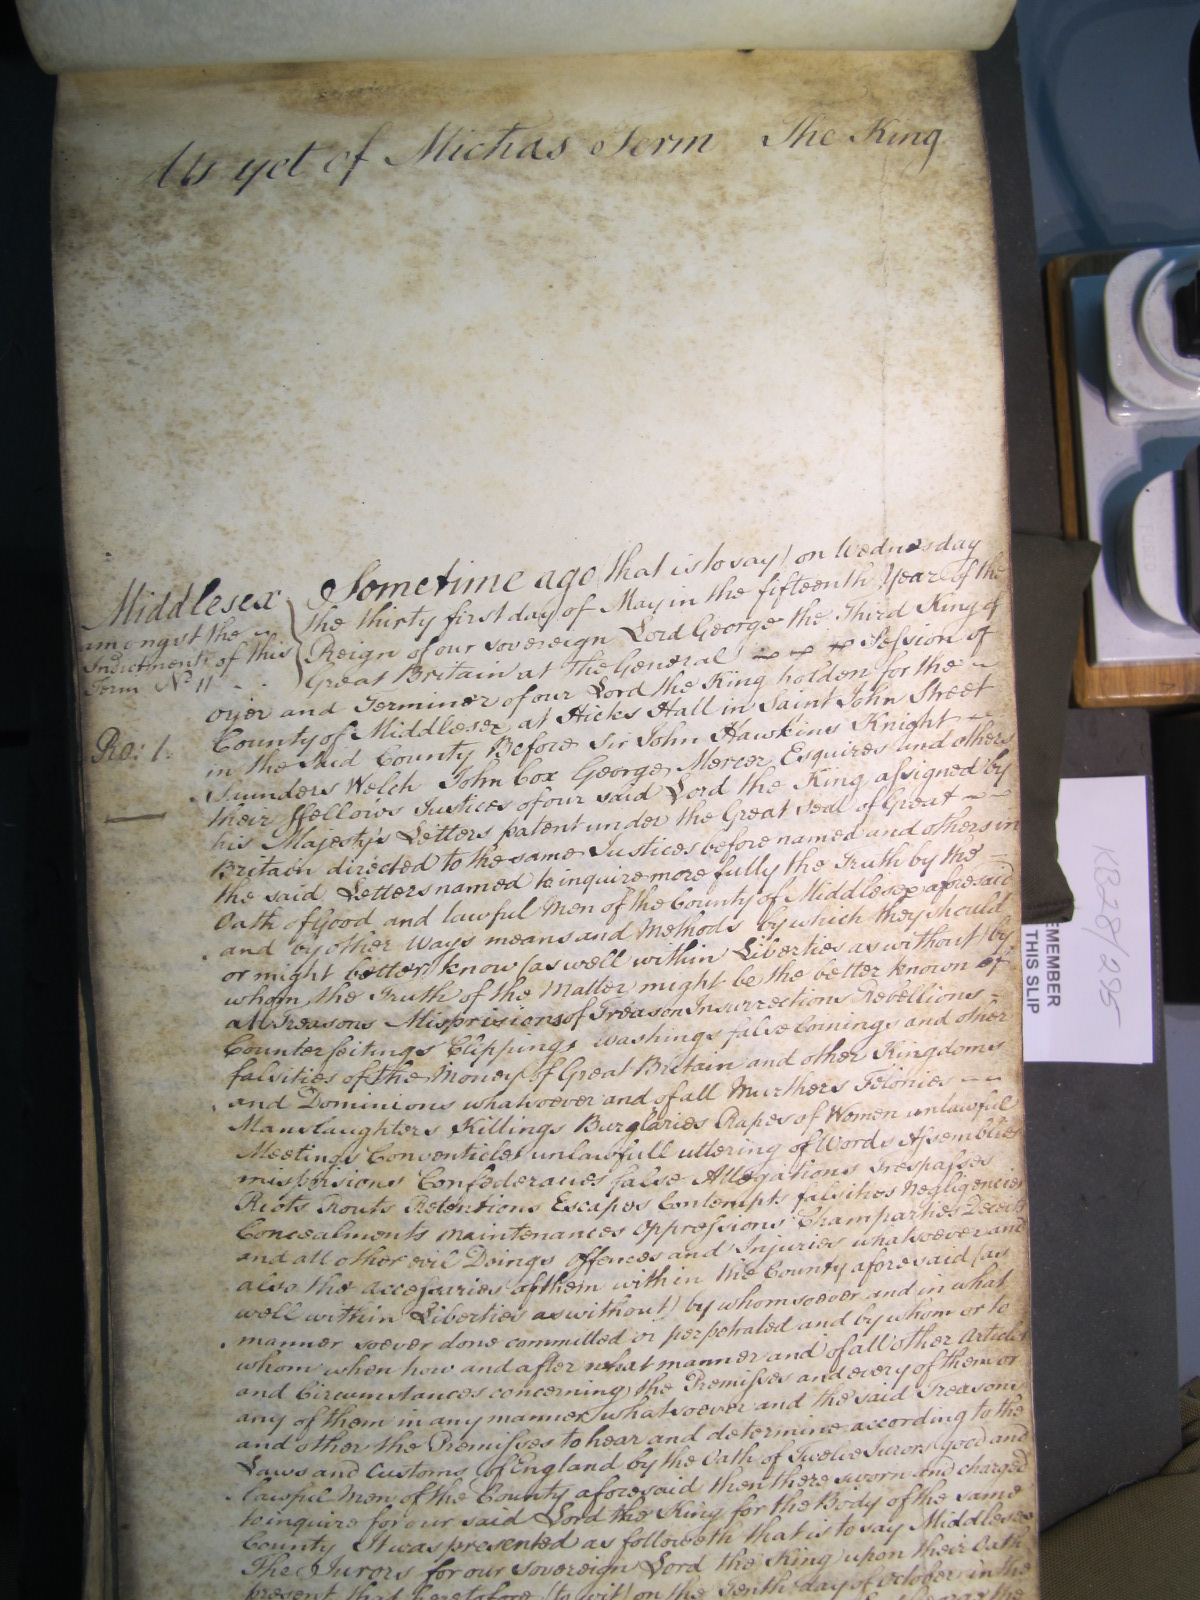 As yet of Michas Term The King
Middlesex Sometime ago (that is to say) on Wednesday
amongst the the thirty first day of May in the fifteenth Year of the
Indictments of this Reign of our sovereign Lord George the Third King of
Term No 11 Great Britain at the General Session of
oyer and Terminer of our Lord the King holden for the
Ro: 1. County of Middlesex at Hicks Hall in Saint John Street
in the said County Before Sir John Hawkins Knight
Saunders Welch John Cox George Mercer Esquires and others
their ffellows Justices of our said Lord the King assigned by
his Majesty's Letters patent under the Great Seal of Great
Britain directed to the same Justices before named and others in
the said Letters named to inquire more fully the Truth by the
Oath of Good and lawful Men of the County of Middlesex aforesaid
and by other Ways means and Methods by which they should
or might better know (as well within Liberties as without) by
whom the Truth of the Matter might be the better known of
all Treasons Misprisions of Treason Insurrections Rebellions
Counterfeitings Clippings washings false Coinings and other
falsities of the Money of Great Britain and other Kingdoms
and Dominions whatsoever and of all Murthers Felonies
Manslaughters Killings Burglaries Rapes of Women unlawful
Meetings Conventicles unlawfull uttering of Words Assemblies
misprisions Confederacies false Allegations Trespasses
Riots Routs Retentions Escapes Contempts falsities Negligencies
Concealments maintenances oppressions Champarties Deceits
and all other evil Doings offences and Injuries whatsoever and
also the accessaries of them within the County aforesaid (as
well within Liberties as without) by whomsoever and in what
manner soever done committed or perpetrated and by whom or to
whom when how and after what manner and of all other Articles
and Circumstances concerning the Premisses and every of them or
any of them in any manner whatsoever and the said Treasons
and other the Premisses to hear and determine according to the
Laws and Customs of England by the Oath of Twelve Jurors good and
lawful Men of the County aforesaid then there sworn and charged
to inquire for our said Lord the King for the Body of the same
County It was presented as followeth that is to say Middlesex
The Jurors for our sovereign Lord the King upon their Oath
present that heretofore (to wit) on the Tenth day of October in the
KB28/295
EMEMBER
THIS SLIP